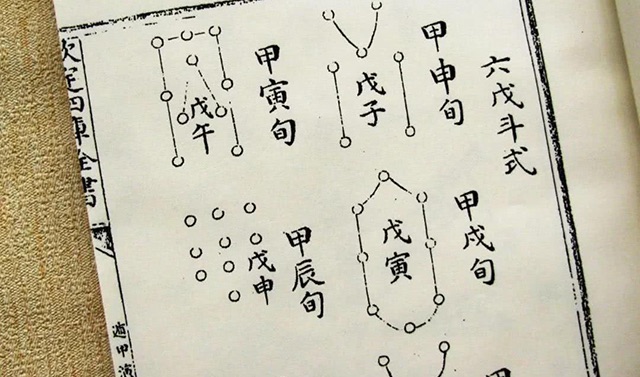 六戊斗式
甲申旬
戊子
甲寅旬
戊午
甲戌旬
戊寅
甲辰旬
戊申
欽定四庫全書
遁甲演